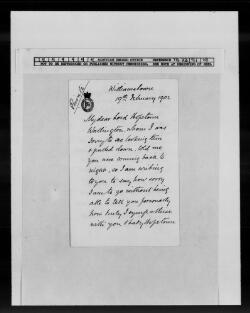 Private
Williamstowne
19th February 1902
My dear Lord Hopetoun
Wallington, whom I was
sorry to see looking thin
& pulled down, told me
you were coming back to
night, so I am writing
to you to say how sorry
I am to go without being
able to tell you personally
how truly I sympathise
with you & Lady Hopetoun